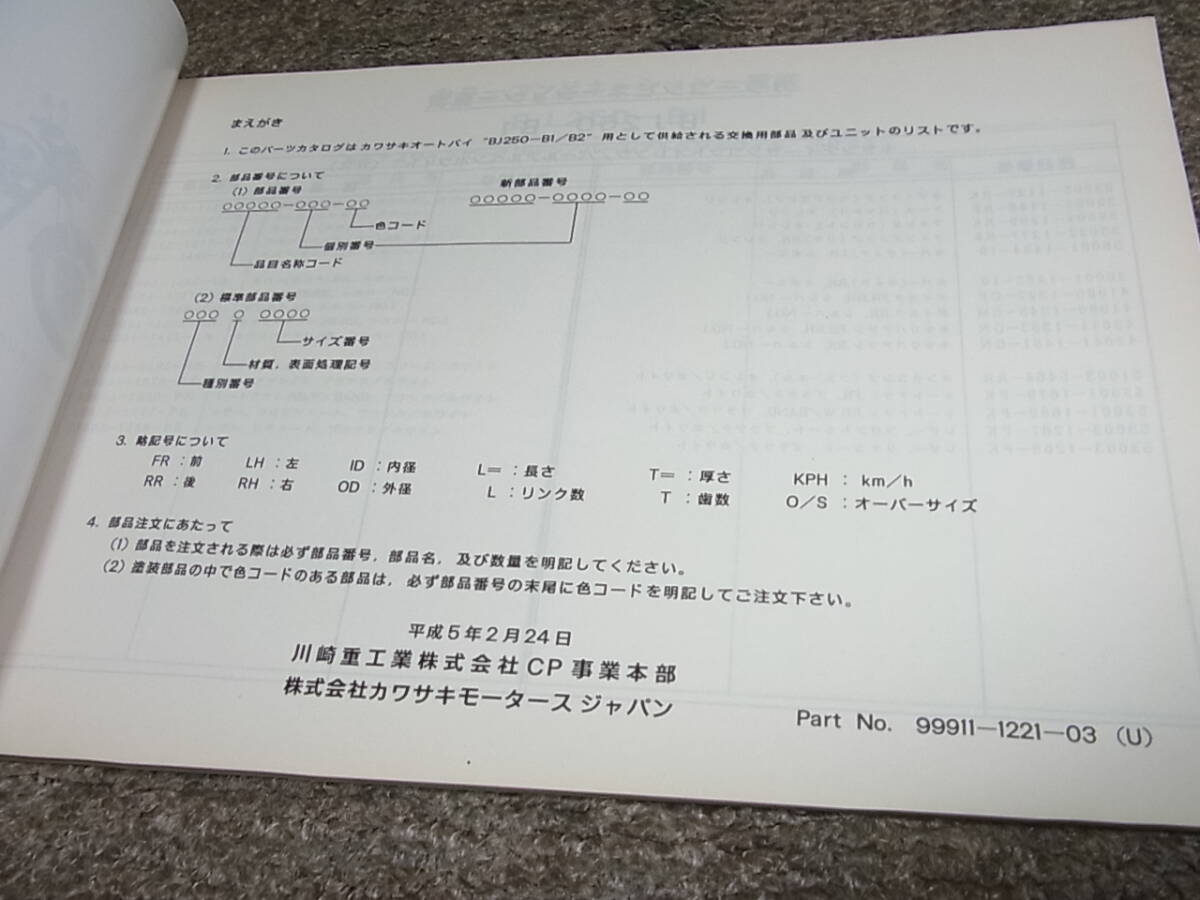 まえがき
1. このパーツカタログは カワサキオートバイ "BJ250-B1/B2" 用として供給される交換用部品 及びユニットのリストです。
2. 部品番号について
(1) 部品番号
新部品番号
○○○○○-○○○-○○
○○○○○-○○○○-○○
色コード
個別番号
品目名称コード
(2) 標準部品番号
○○○ ○ ○○○○
サイズ番号
材質, 表面処理記号
種別番号
3. 略記号について
FR : 前 LH : 左 ID : 内径 L= : 長さ T= : 厚さ KPH : km/h
RR : 後 RH : 右 OD : 外径 L : リンク数 T : 歯数 O/S : オーバーサイズ
4. 部品注文にあたって
(1) 部品を注文される際は必ず部品番号, 部品名, 及び数量を明記してください。
(2) 塗装部品の中で色コードのある部品は, 必ず部品番号の末尾に色コードを明記してご注文下さい。
平成5年2月24日
川崎重工業株式会社CP事業本部
株式会社カワサキモータース ジャパン
Part No. 99911-1221-03 (U)